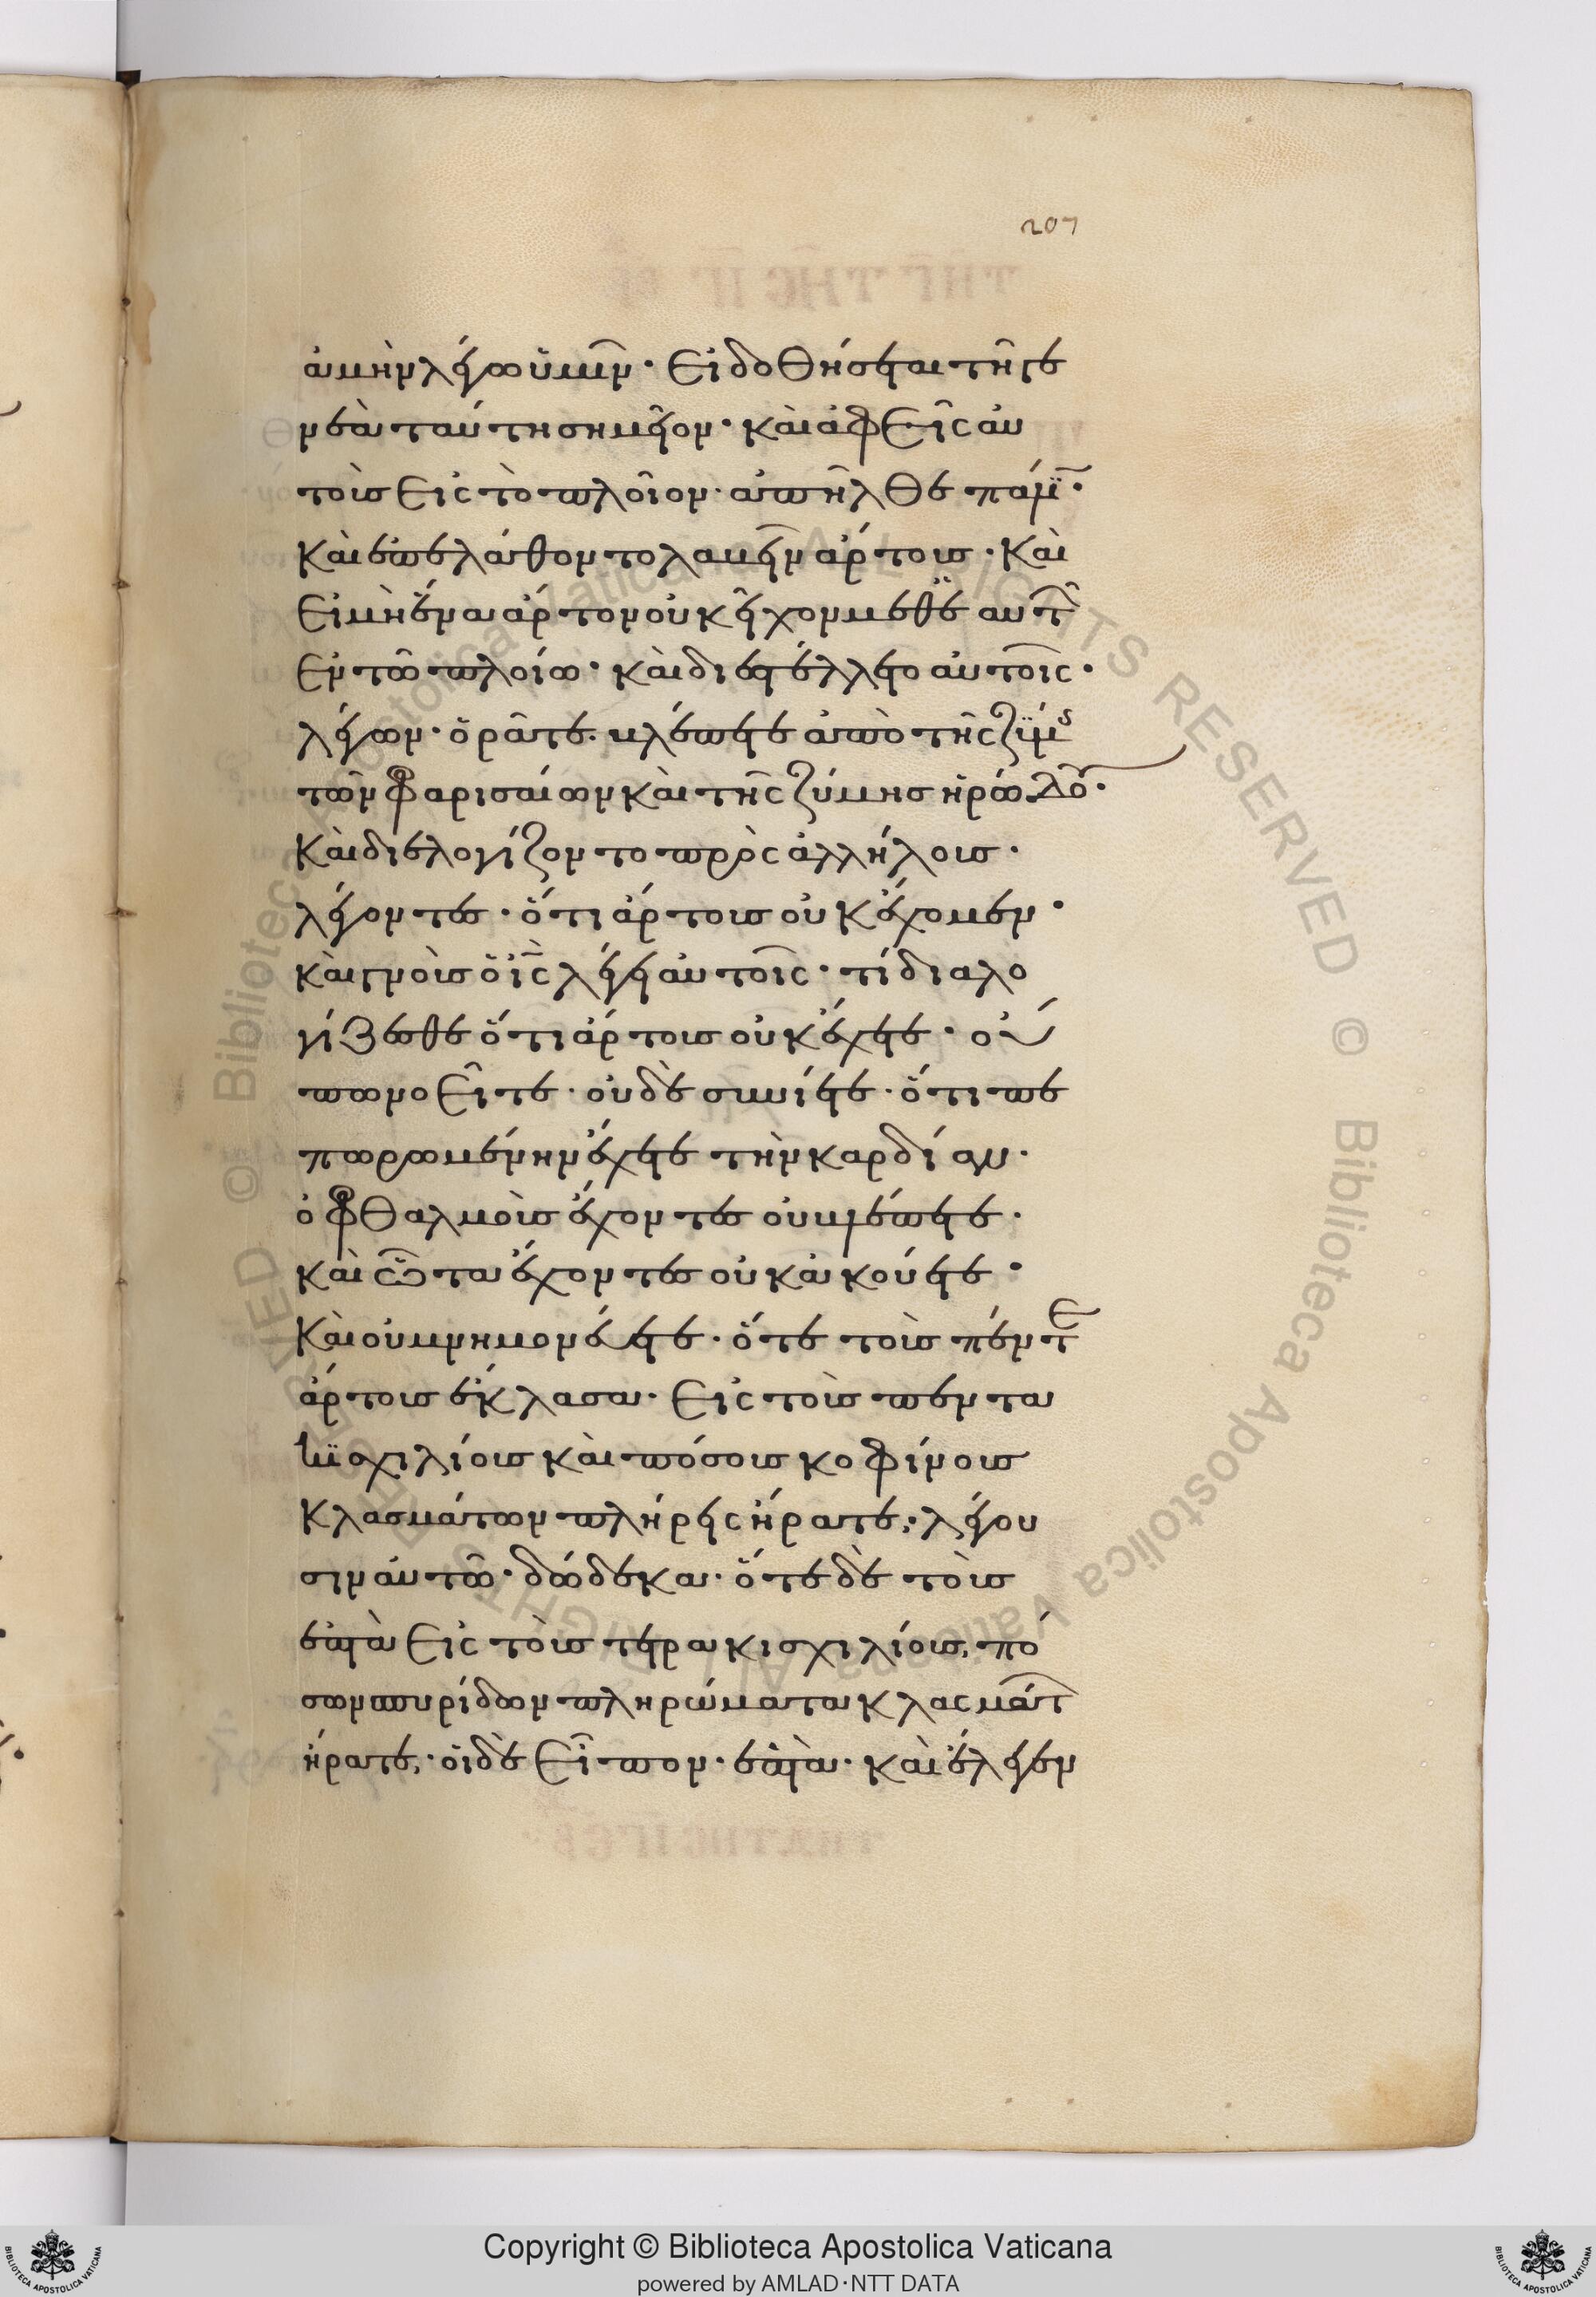 207
ἀμὴν λέγω ὑμῖν· εἰ δοθήσεται τῆ γε
νεὰ ταύτη σημεῖον· καὶ ἀφεῖς αὐ
τοὺς εἰς τὸ πλοῖον· ἀπῆλθε πάλιν·
καὶ ἐπελάθοντο λαβεῖν ἄρτους· καὶ
εἰ μὴ ἕνα ἄρτον οὐκ εἶχον μεθ' ἑαυτ
ἐν τῶ πλοίω· καὶ διεστέλλετο αὐτοῖς·
λέγων· ὁρᾶτε· βλέπετε ἀπὸ τῆς ζύμ
τῶν φαρισαίων καὶ τῆς ζύμης ἡρώδου·
καὶ διελογίζοντο πρὸς ἀλλήλους·
λέγοντες· ὅτι ἄρτους οὐκ ἔχομεν·
καὶ γνοὺς ὁ ις λέγει αὐτοῖς· τί διαλο
γίζεσθε ὅτι ἄρτους οὐκ ἔχετε· οὔ
πω νοεῖτε· οὐδὲ συνίετε· ὅτι πε
πωρωμένην ἔχετε τὴν καρδίαν·
ὀφθαλμοὺς ἔχοντες οὐ βλέπετε·
καὶ ὦτα ἔχοντες οὐκ ἀκούετε·
καὶ οὐ μνημονεύετε· ὅτε τοὺς πέντε
ἄρτους ἔκλασα· εἰς τοὺς πεντα
κισχιλίους καὶ πόσους κοφίνους
κλασμάτων πλήρεις ἤρατε;· λέγου
σιν αὐτῶ· δώδεκα· ὅτε δὲ τοὺς
ἑπτὰ εἰς τοὺς τετρακισχιλίους, πό
σων σπυρίδων πληρώματα κλασμάτ
ἤρατε;· οἱ δὲ εἶπον· ἑπτὰ· καὶ ἔλεγεν
Copyright © Biblioteca Apostolica Vaticana
powered by AMLAD·NTT DATA